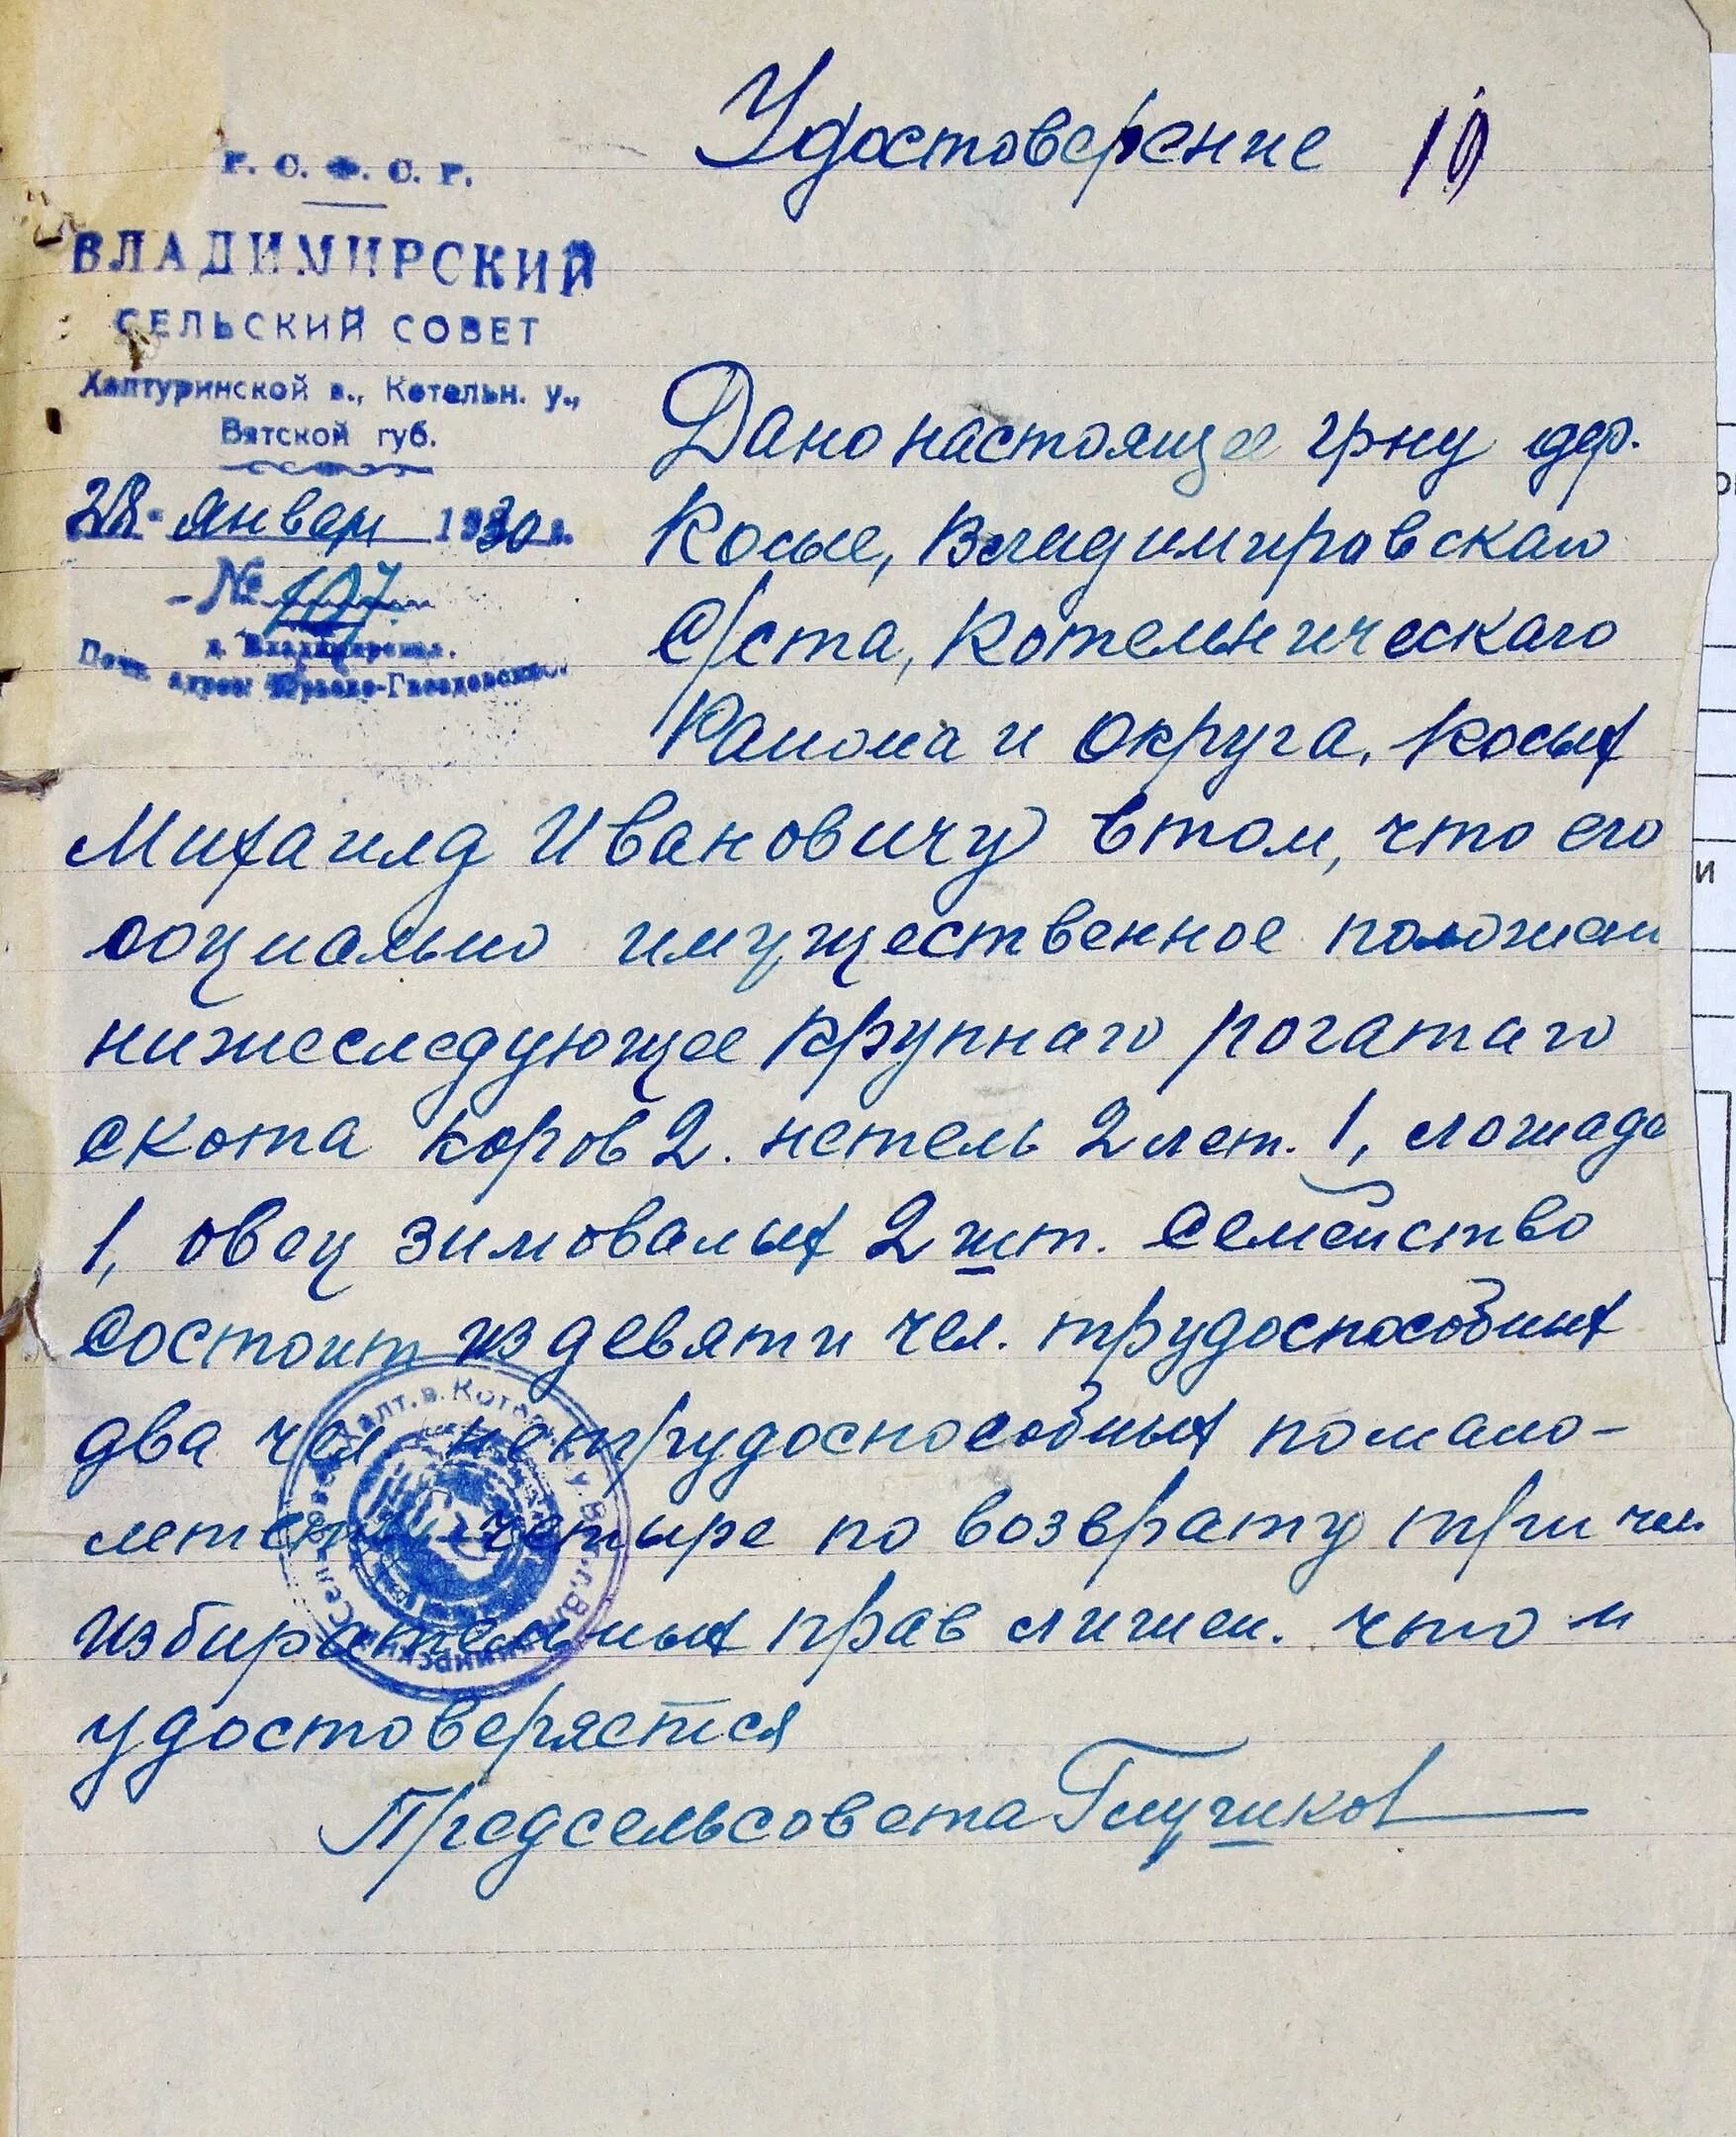 Удостоверение 10
Р. С. Ф. С. Р.
ВЛАДИМИРСКИЙ
СЕЛЬСКИЙ СОВЕТ
Халтуринской в., Котельн. у.,
Вятской губ.
28 январ 1930 г.
№ 107
Дано настоящее грну дер.
Косые, Владимировскаго
С/ста, Котельническаго
Района и Округа, Косых
Михаилд Ивановичу в том, что его
социально имущественное положени
нижеследующее крупнаго рогатаго
скота коров 2. нетель 2 лет. 1, лошадь
1, овец зимовалых 2 шт. Семейство
состоит из девяти чел. трудоспособных
два чел нетрудоспособных по мало-
летству четыре по возврату три чел.
избирательных прав лишен. что и
удостоверяется
Предсельсовета Глушков